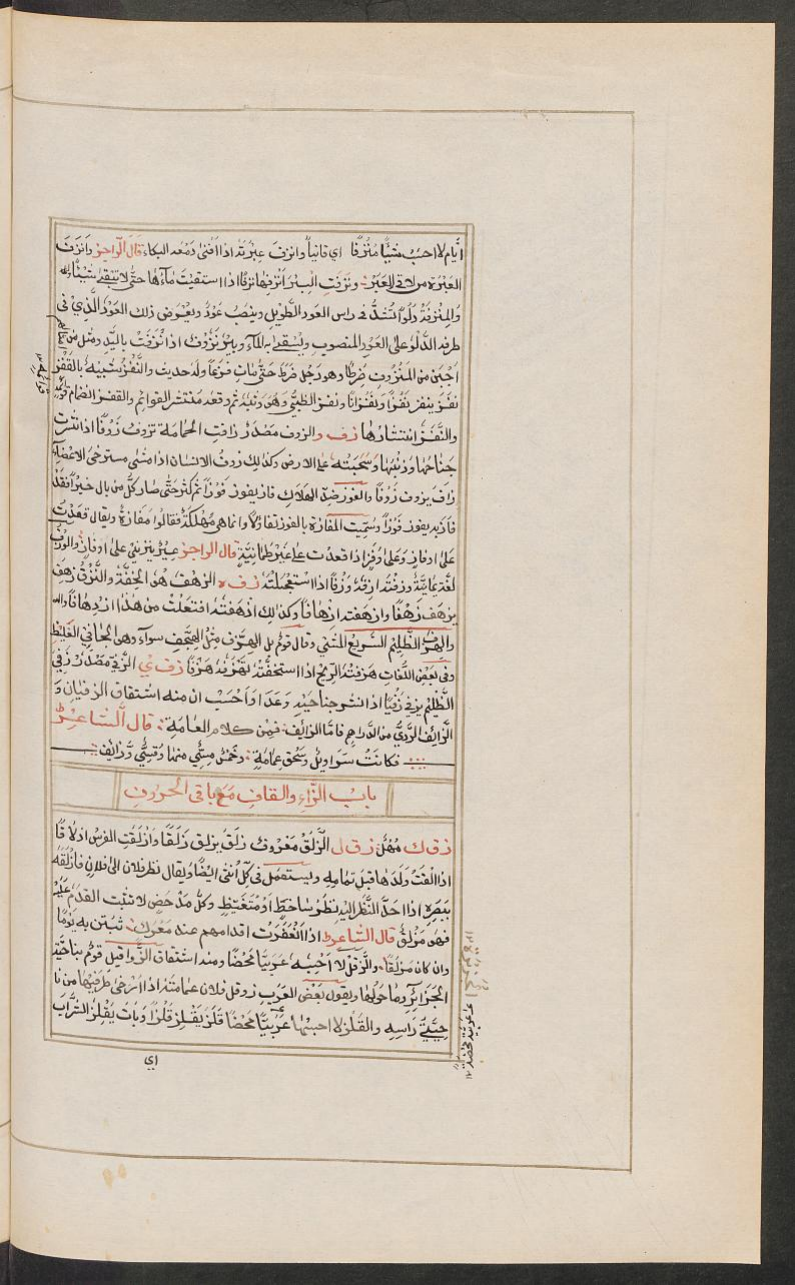 ايّام لا احبّ شيئًا مُنْزَفًا اى فانياً وانزف عبرته اذا افنى دمعه البكاء قال الراجز وانزف
العَبْرَة من لاقى العِبَرْ ونزفت البير انزفها نزفًا اذا استقيت ماءها حتى لا تبقى شيئًا
والمِنْزَفَة دَلْوٌ تُشَدُّ فى راس العود الطويل وينصب عودٌ ويعرض ذلك العود الذى فى
طرفه الدَّلْو على العود المنصوب ويستقى به الماء وبير نَزُوف اذا نُزِفَتْ باليد ومثل من
اجبن من المنزوف ضَرِطًا وهو رجل ضَرِطَ حتى مات فزعًا وله حديث والنَّفْزُ شبيه بالقَفْز
نفز ينفز نفزًا ونفوزًا ونفزانًا ونفز الظبى وهو وثبه ثم وقعه منتشر القوائم والقفز انضمام قوائمه
والنَّفْز انتشارها زف و والزوف مصدر زافت الحمامة تزوف زوفًا اذا نشرت
جناحها وذنبها وسحبته على الارض وكذلك زوف الانسان اذا مشى مسترخى الاعضاء
زاف يزوف زوفًا والفوز ضد الهلاك فاز يفوز فوزًا ثم كثر حتى صار كل من نال خيرًا فقد
فاز به يفوز فوزًا وسُمّيت المفازة بالفوز تفاؤلًا وانما هى مهلكة فقالوا مفازة ويقال قعدت
على اوفاز وعلى وَفَزٍ اذا قعدت على غير طمانينة قال الراجز عيرٌ ينزّينى على اوفاز والوزف
لغة يمانية وزفته ازفه وزفًا اذا استعجلته زف ه الزهف هو الخفة والنزق زهف
يزهف زهفًا وازهفته ازهافًا وكذلك ازدهفته افتعلت من هذا ازدهافًا
والهِزَفّ الظليم السريع المشى وقال قوم بل الهزف مثل الهجف سواء وهو الجافى الغليظ
وفى بعض اللغات هزفته الريح اذا استخفته تهزفه هزفًا زف ى الزفى مصدر زفى
الظليم يزفى زفيًا اذا نشر جناحيه وعدا واحسب ان منه اشتقاق الزفيان و
الزائف الردىّ من الدراهم فاما الزايف فمن كلام العامة قال الشاعر
فكانت سراويل وسحق عمامة وخمس مئى منها وقسىّ وزائف
باب الزاء والقاف مع باقى الحروف
زق ك مهمل زق ل الزَّلَقُ معروف زلق يزلق زلقًا وازلقت الفرس ازلاقًا
اذا القت ولدها قبل تمامه ويستعمل فى كل انثى ايضًا ويقال نظر فلان الى فلان فازلقه
ببصره اذا احدّ النظر اليه نظر ساخط او متغيظ وكل مدحض لا تثبت القدم عليه
فهو مزلق قال الشاعر اذا انعفرت اقدامهم عند معرك ثبتن به يومًا
وان كان مزلقًا والزقل لا احسبه عربيًا محضًا ومنه اشتقاق الزواقيل قوم بناحية
الجزائر وما حولها ويقول بعض العرب زوقل فلان عمامته اذا ارخى طرفيها من نا
حيتى راسه والقلز لا احسبها عربيًا محضًا قلز يقلز قلزًا وبات يقلز الشراب
اى